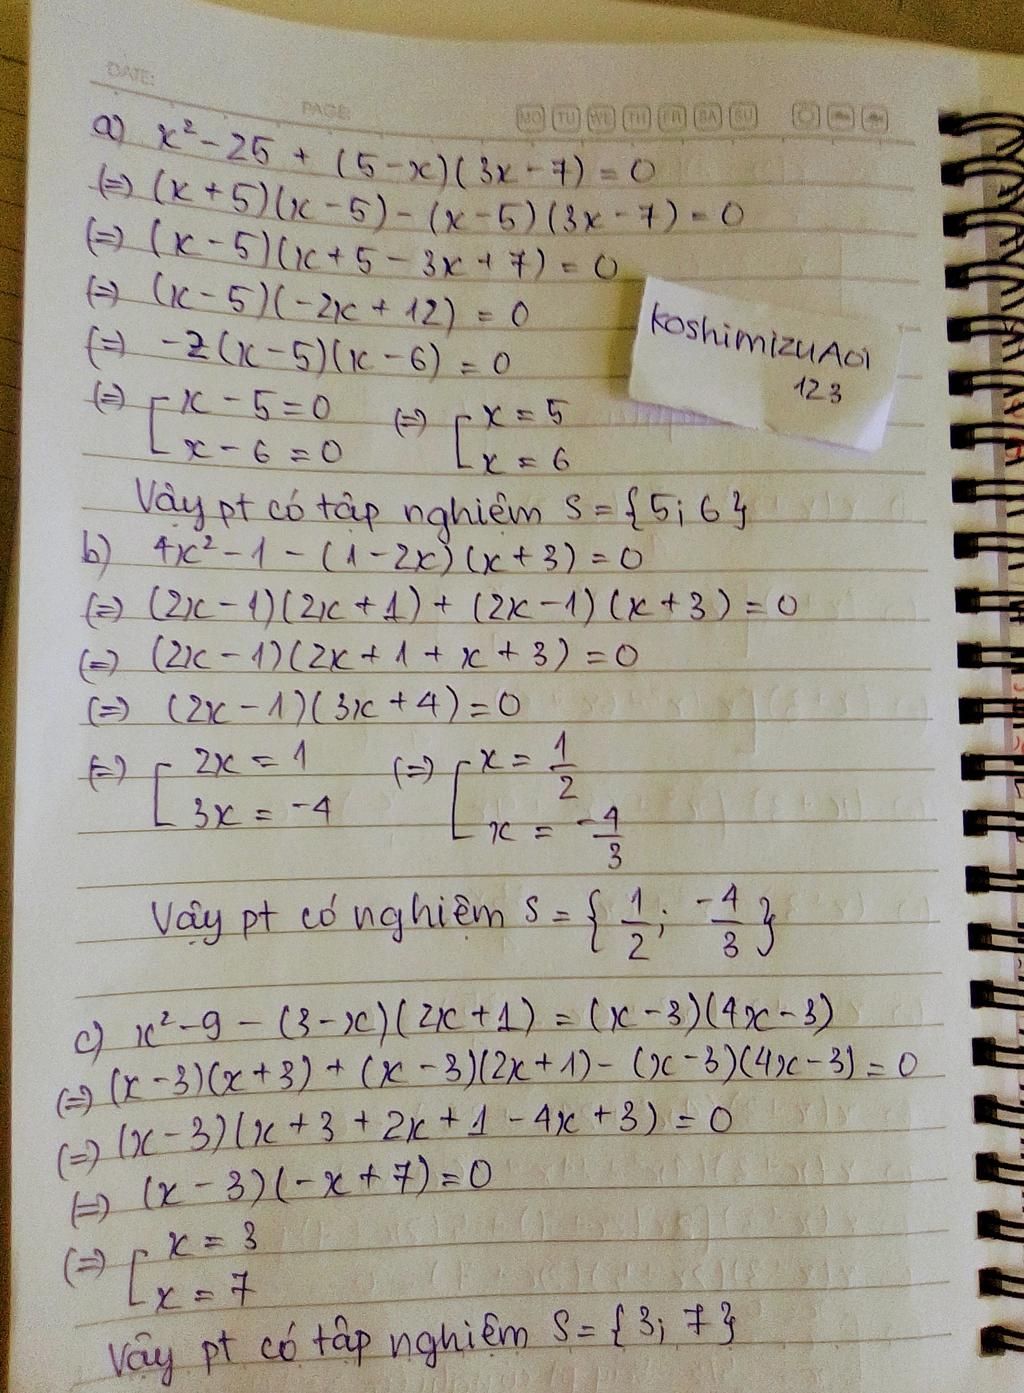 DATE:
PAGE:
MO TU WE TH FR SA SU
a) x² - 25 + (5 - x)(3x - 7) = 0
(=) (x + 5)(x - 5) - (x - 5)(3x - 7) = 0
(=) (x - 5)(x + 5 - 3x + 7) = 0
(=) (x - 5)(-2x + 12) = 0
(=) -2(x - 5)(x - 6) = 0
(=) [ x - 5 = 0 (=) [ x = 5
x - 6 = 0 x = 6
Vậy pt có tập nghiệm S = {5; 6}
b) 4x² - 1 - (1 - 2x)(x + 3) = 0
(=) (2x - 1)(2x + 1) + (2x - 1)(x + 3) = 0
(=) (2x - 1)(2x + 1 + x + 3) = 0
(=) (2x - 1)(3x + 4) = 0
(=) [ 2x = 1 (=) [ x = 1/2
3x = -4 x = -4/3
Vậy pt có nghiệm S = {1/2; -4/3}
c) x² - 9 - (3 - x)(2x + 1) = (x - 3)(4x - 3)
(=) (x - 3)(x + 3) + (x - 3)(2x + 1) - (x - 3)(4x - 3) = 0
(=) (x - 3)(x + 3 + 2x + 1 - 4x + 3) = 0
(=) (x - 3)(-x + 7) = 0
(=) [ x = 3
x = 7
Vậy pt có tập nghiệm S = {3; 7}
KoshimizuAoi
123